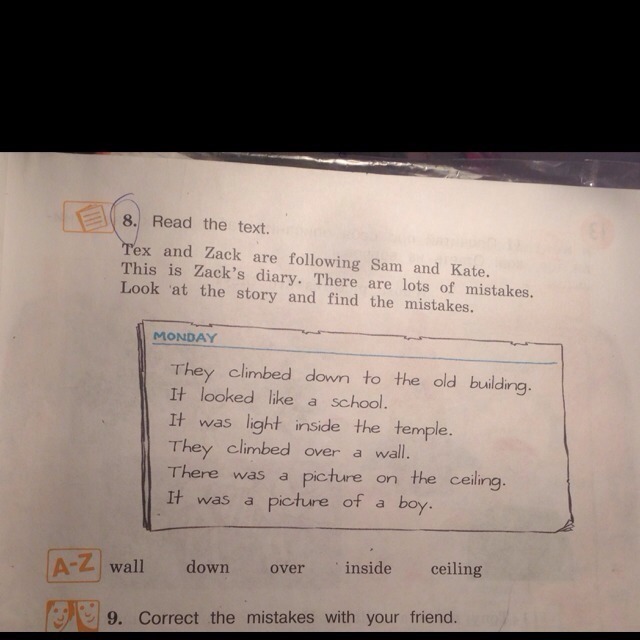 8. Read the text.
Tex and Zack are following Sam and Kate.
This is Zack's diary. There are lots of mistakes.
Look at the story and find the mistakes.
MONDAY
They climbed down to the old building.
It looked like a school.
It was light inside the temple.
They climbed over a wall.
There was a picture on the ceiling.
It was a picture of a boy.
A-Z wall down over inside ceiling
9. Correct the mistakes with your friend.